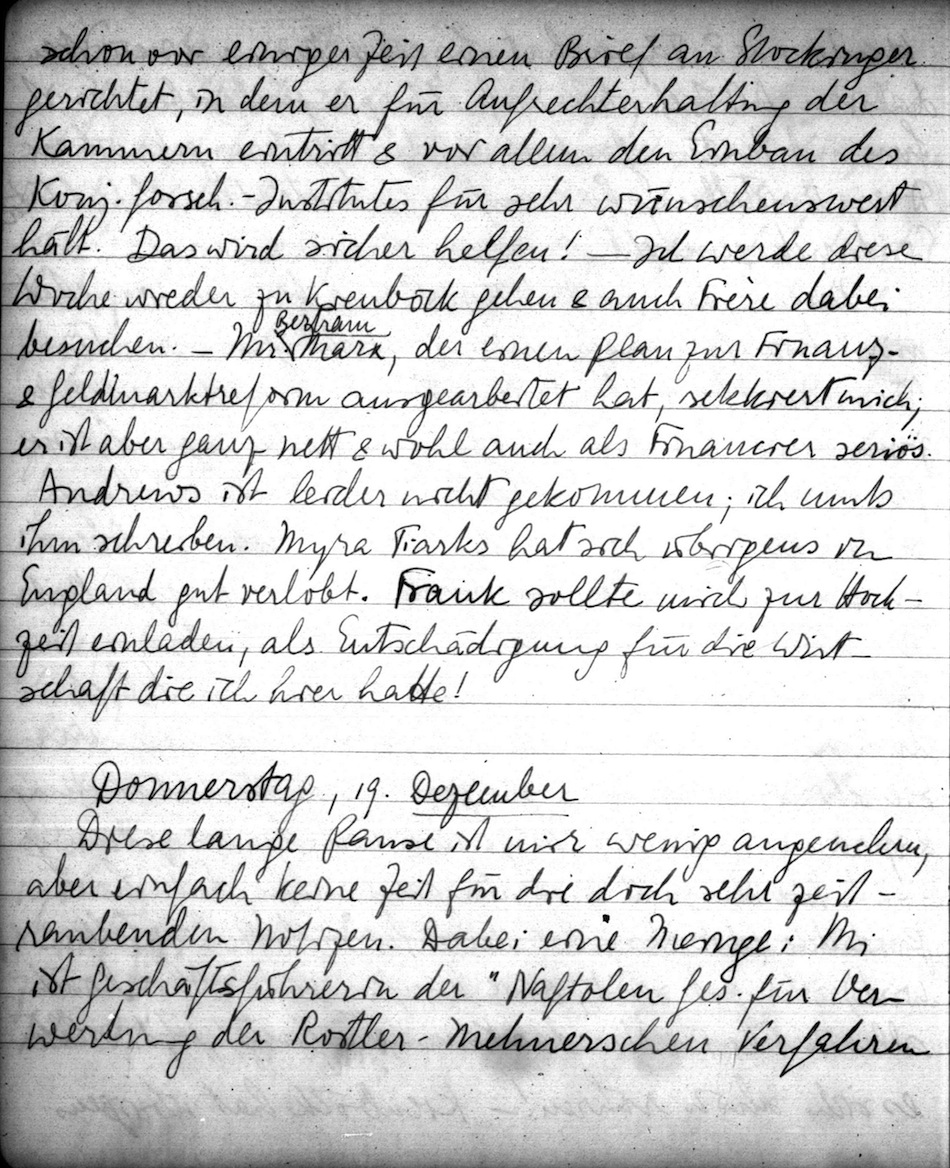 schon vor einiger Zeit einen Brief an Stockinger
gerichtet, in dem er für Aufrechterhaltung der
Kammern eintritt & vor allem den Einbau des
Konj.forsch.-Institutes für sehr wünschenswert
hält. Das wird sicher helfen! — Ich werde diese
Woche wieder zu Kienböck gehen & auch Frère dabei
besuchen. – Mr. Bertram Marx, der einen Plan zur Finanz-
& Geldmarktreform ausgearbeitet hat, sekkiert mich;
er ist aber ganz nett & wohl auch als Financier seriös.
Andrews ist leider nicht gekommen; ich muß
ihm schreiben. Myra Tiarks hat sich übrigens in
England gut verlobt. Frank sollte mich zur Hoch-
zeit einladen, als Entschädigung für die Wirt-
schaft die ich hier hatte!
Donnerstag, 19. Dezember
Diese lange Pause ist mir wenig angenehm,
aber einfach keine Zeit für die doch sehr zeit-
raubenden Notizen. Dabei eine Menge: Mi
ist Geschäftsführerin der "Naftolen Ges. für Ver-
wertung der Rostler-Mehnerschen Verfahren